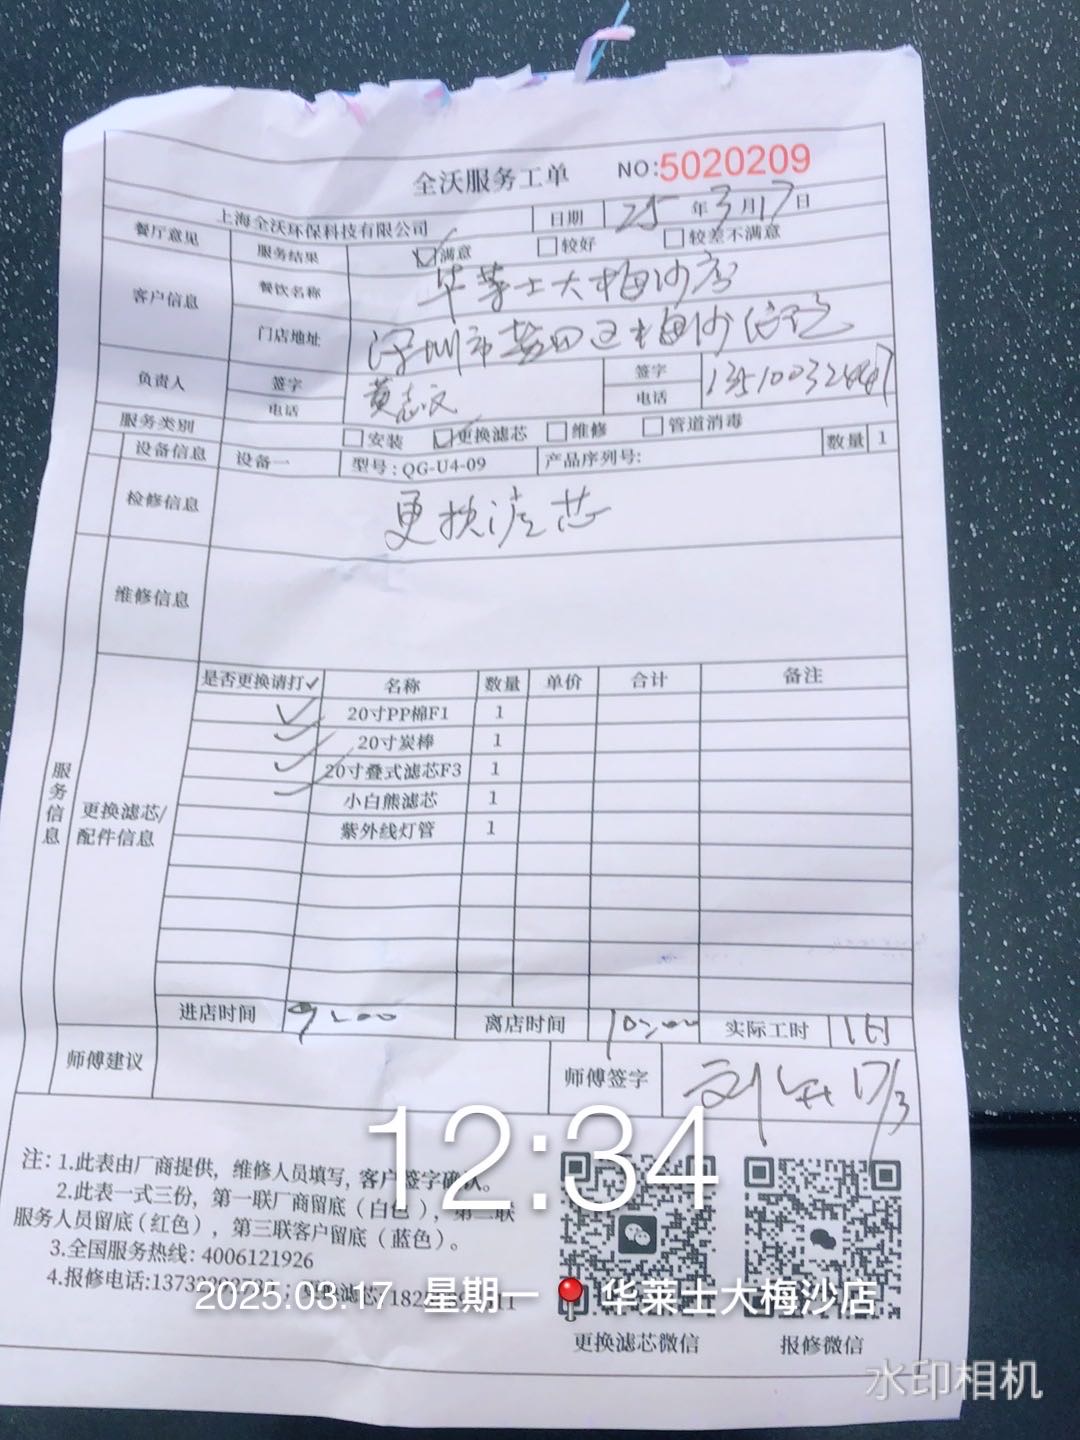 全沃服务工单 NO:5020209
上海全沃环保科技有限公司 日期 25年3月17日
餐厅意见 服务结果 满意 较好 较差不满意
客户信息 餐饮名称 华莱士大梅沙店
门店地址 深圳市盐田区大梅沙
负责人 签字 黄志文 签字
电话 电话
服务类别 安装 更换滤芯 维修 管道消毒
设备信息 设备一 型号: QG-U4-09 产品序列号: 数量 1
检修信息 更换滤芯
维修信息
服务信息
更换滤芯/
配件信息
是否更换请打✓ 名称 数量 单价 合计 备注
✓ 20寸PP棉F1 1
✓ 20寸炭棒 1
✓ 20寸叠式滤芯F3 1
✓ 小白熊滤芯 1
紫外线灯管 1
进店时间 9:00 离店时间 10:00 实际工时 1H
师傅建议 师傅签字 刘 17/3
注: 1.此表由厂商提供，维修人员填写, 客户签字确认。
2.此表一式三份，第一联厂商留底（白色），第二联
服务人员留底（红色），第三联客户留底（蓝色）。
3.全国服务热线: 4006121926
4.报修电话:
更换滤芯微信 报修微信
12:34
2025.03.17 星期一 华莱士大梅沙店
水印相机